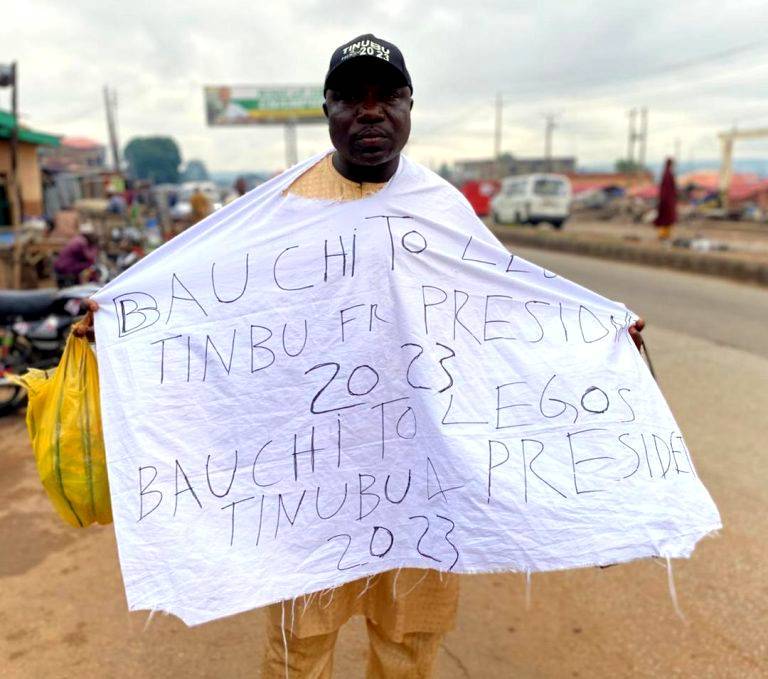 TINUBU
2023
BAUCHI TO
TINBU FR PRESID
2023
BAUCHI TO LEGOS
TINUBU A PRESIDET
2023